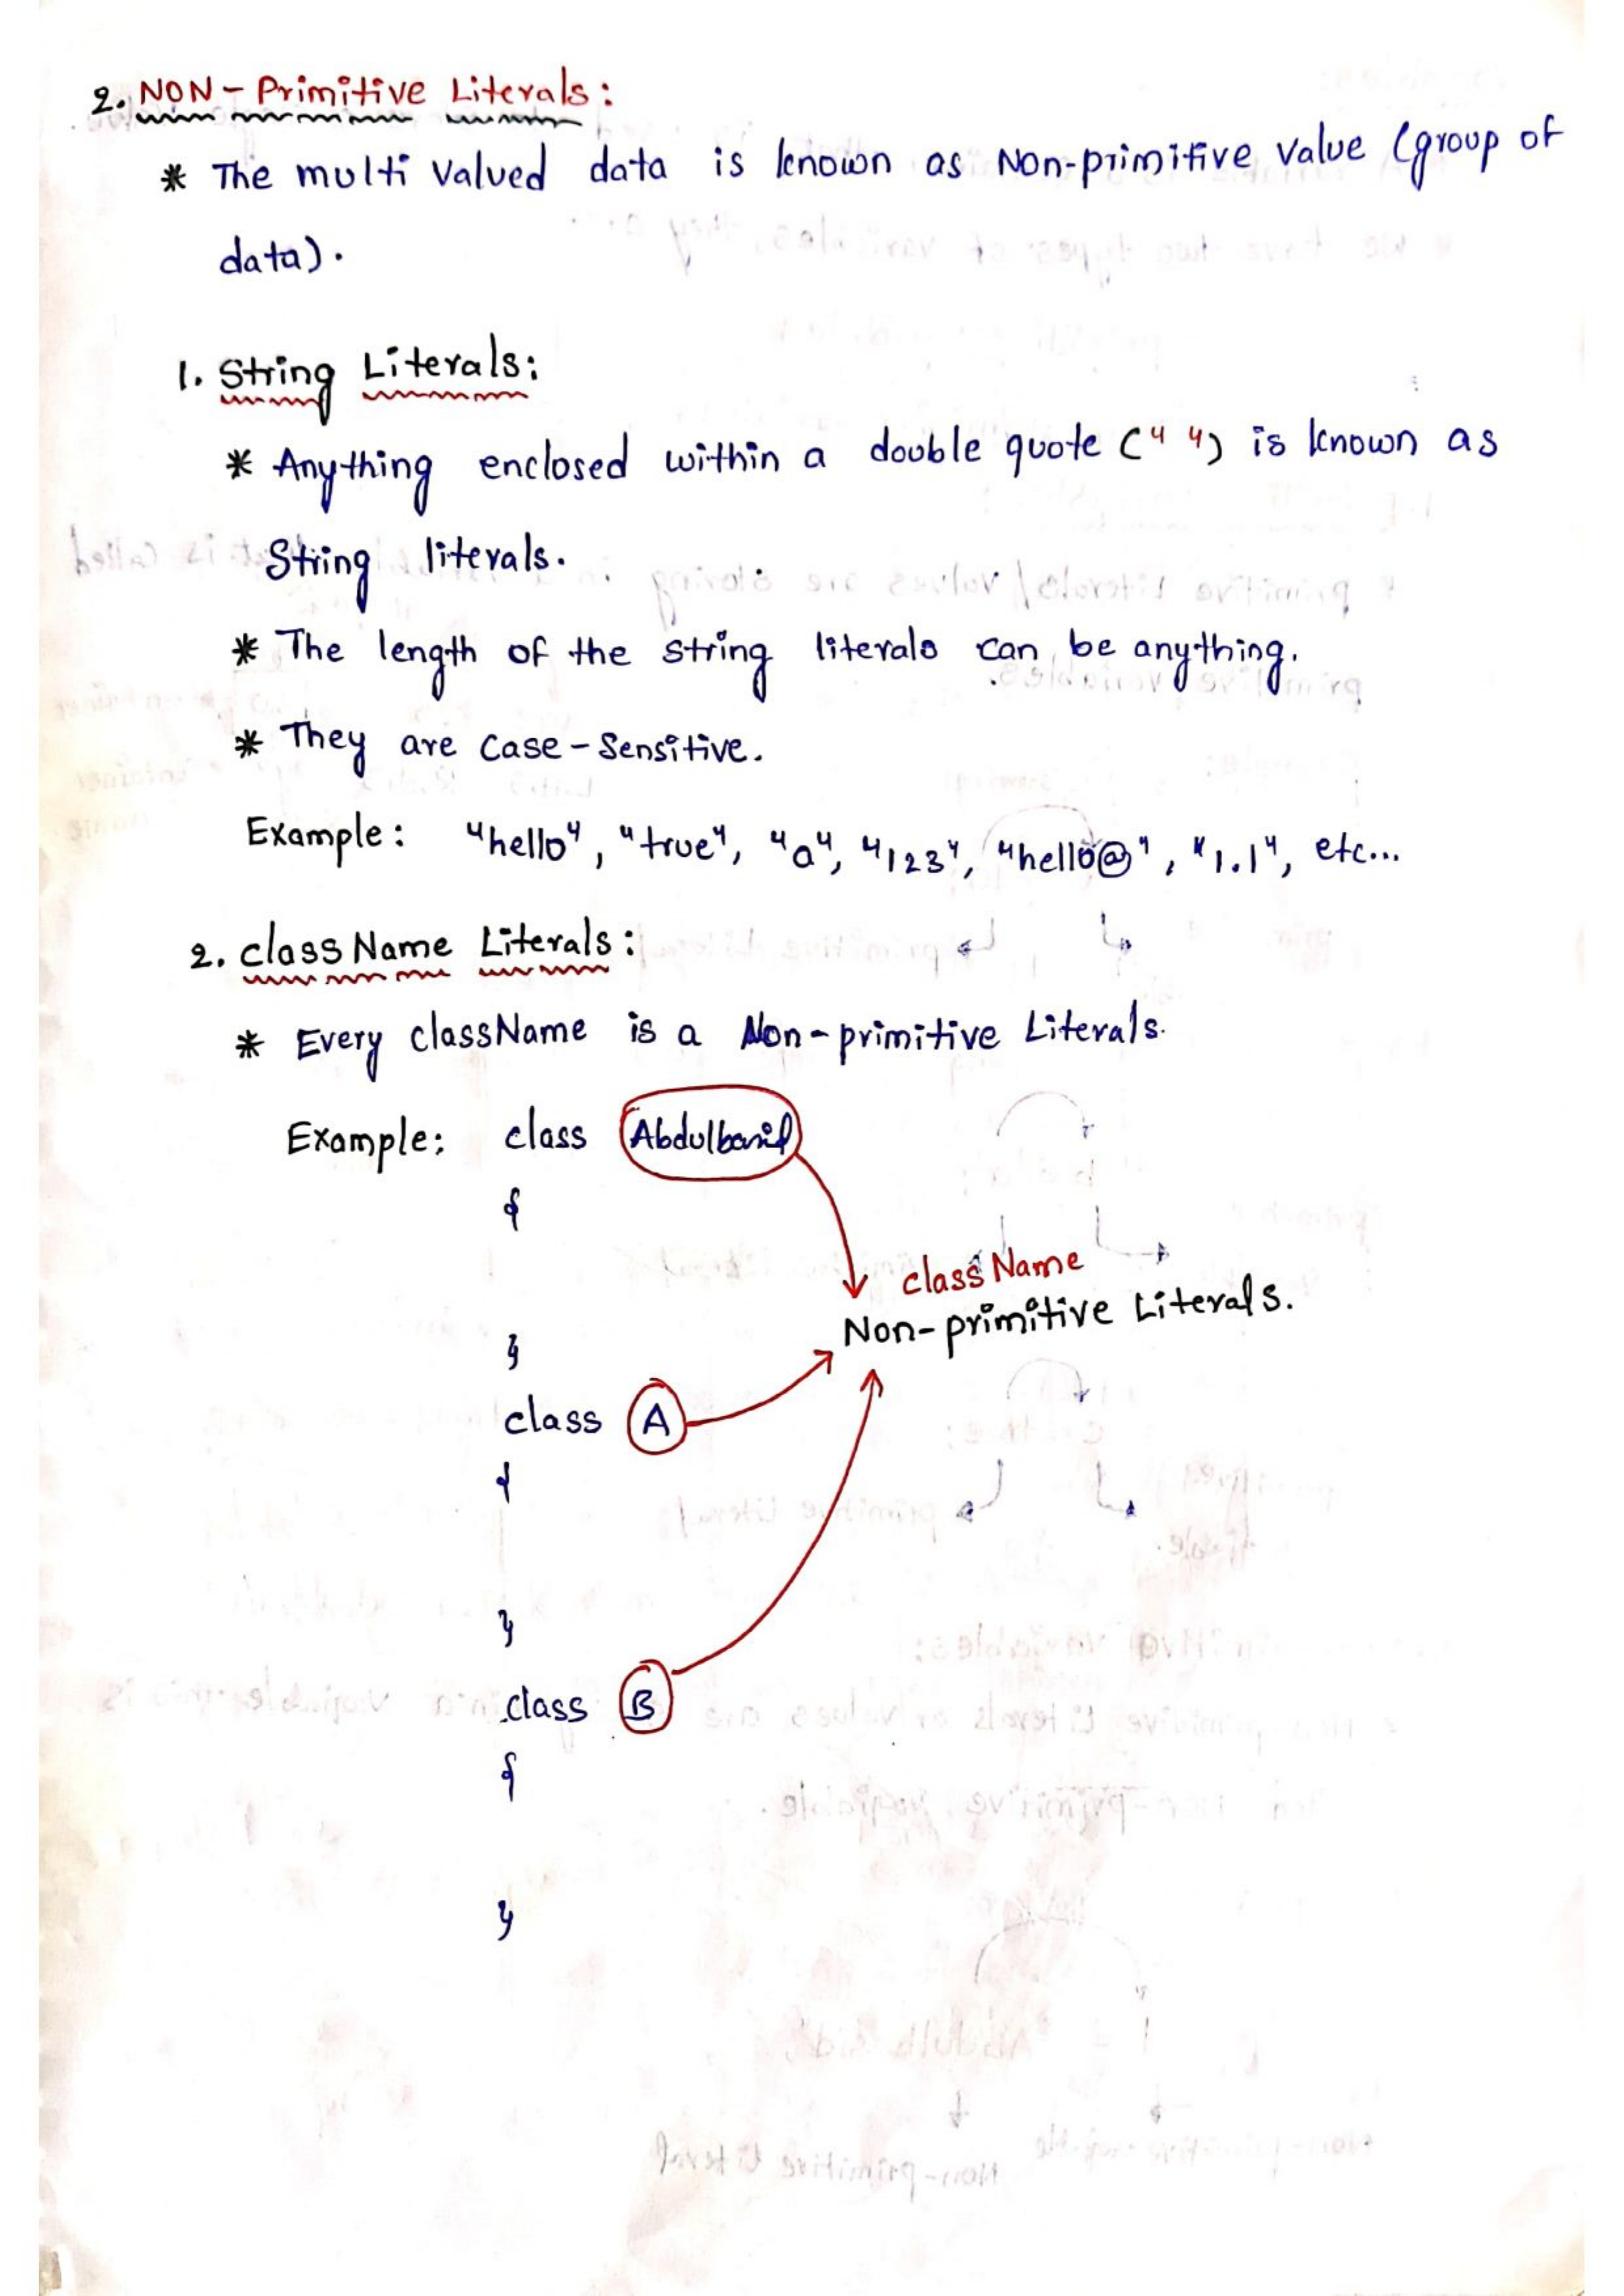 2. NON-Primitive Literals:
* The multi Valued data is known as Non-primitive value (group of
data).
1. String Literals:
* Anything enclosed within a double quote (" ") is known as
String literals.
* The length of the string literals can be anything.
* They are case-Sensitive.
Example: "hello", "true", "a", "123", "hello@", "1.1", etc...
2. class Name Literals:
* Every className is a Non-primitive Literals.
Example: class
{
className
Non-primitive Literals.
}
class A
{
}
class B
{
}